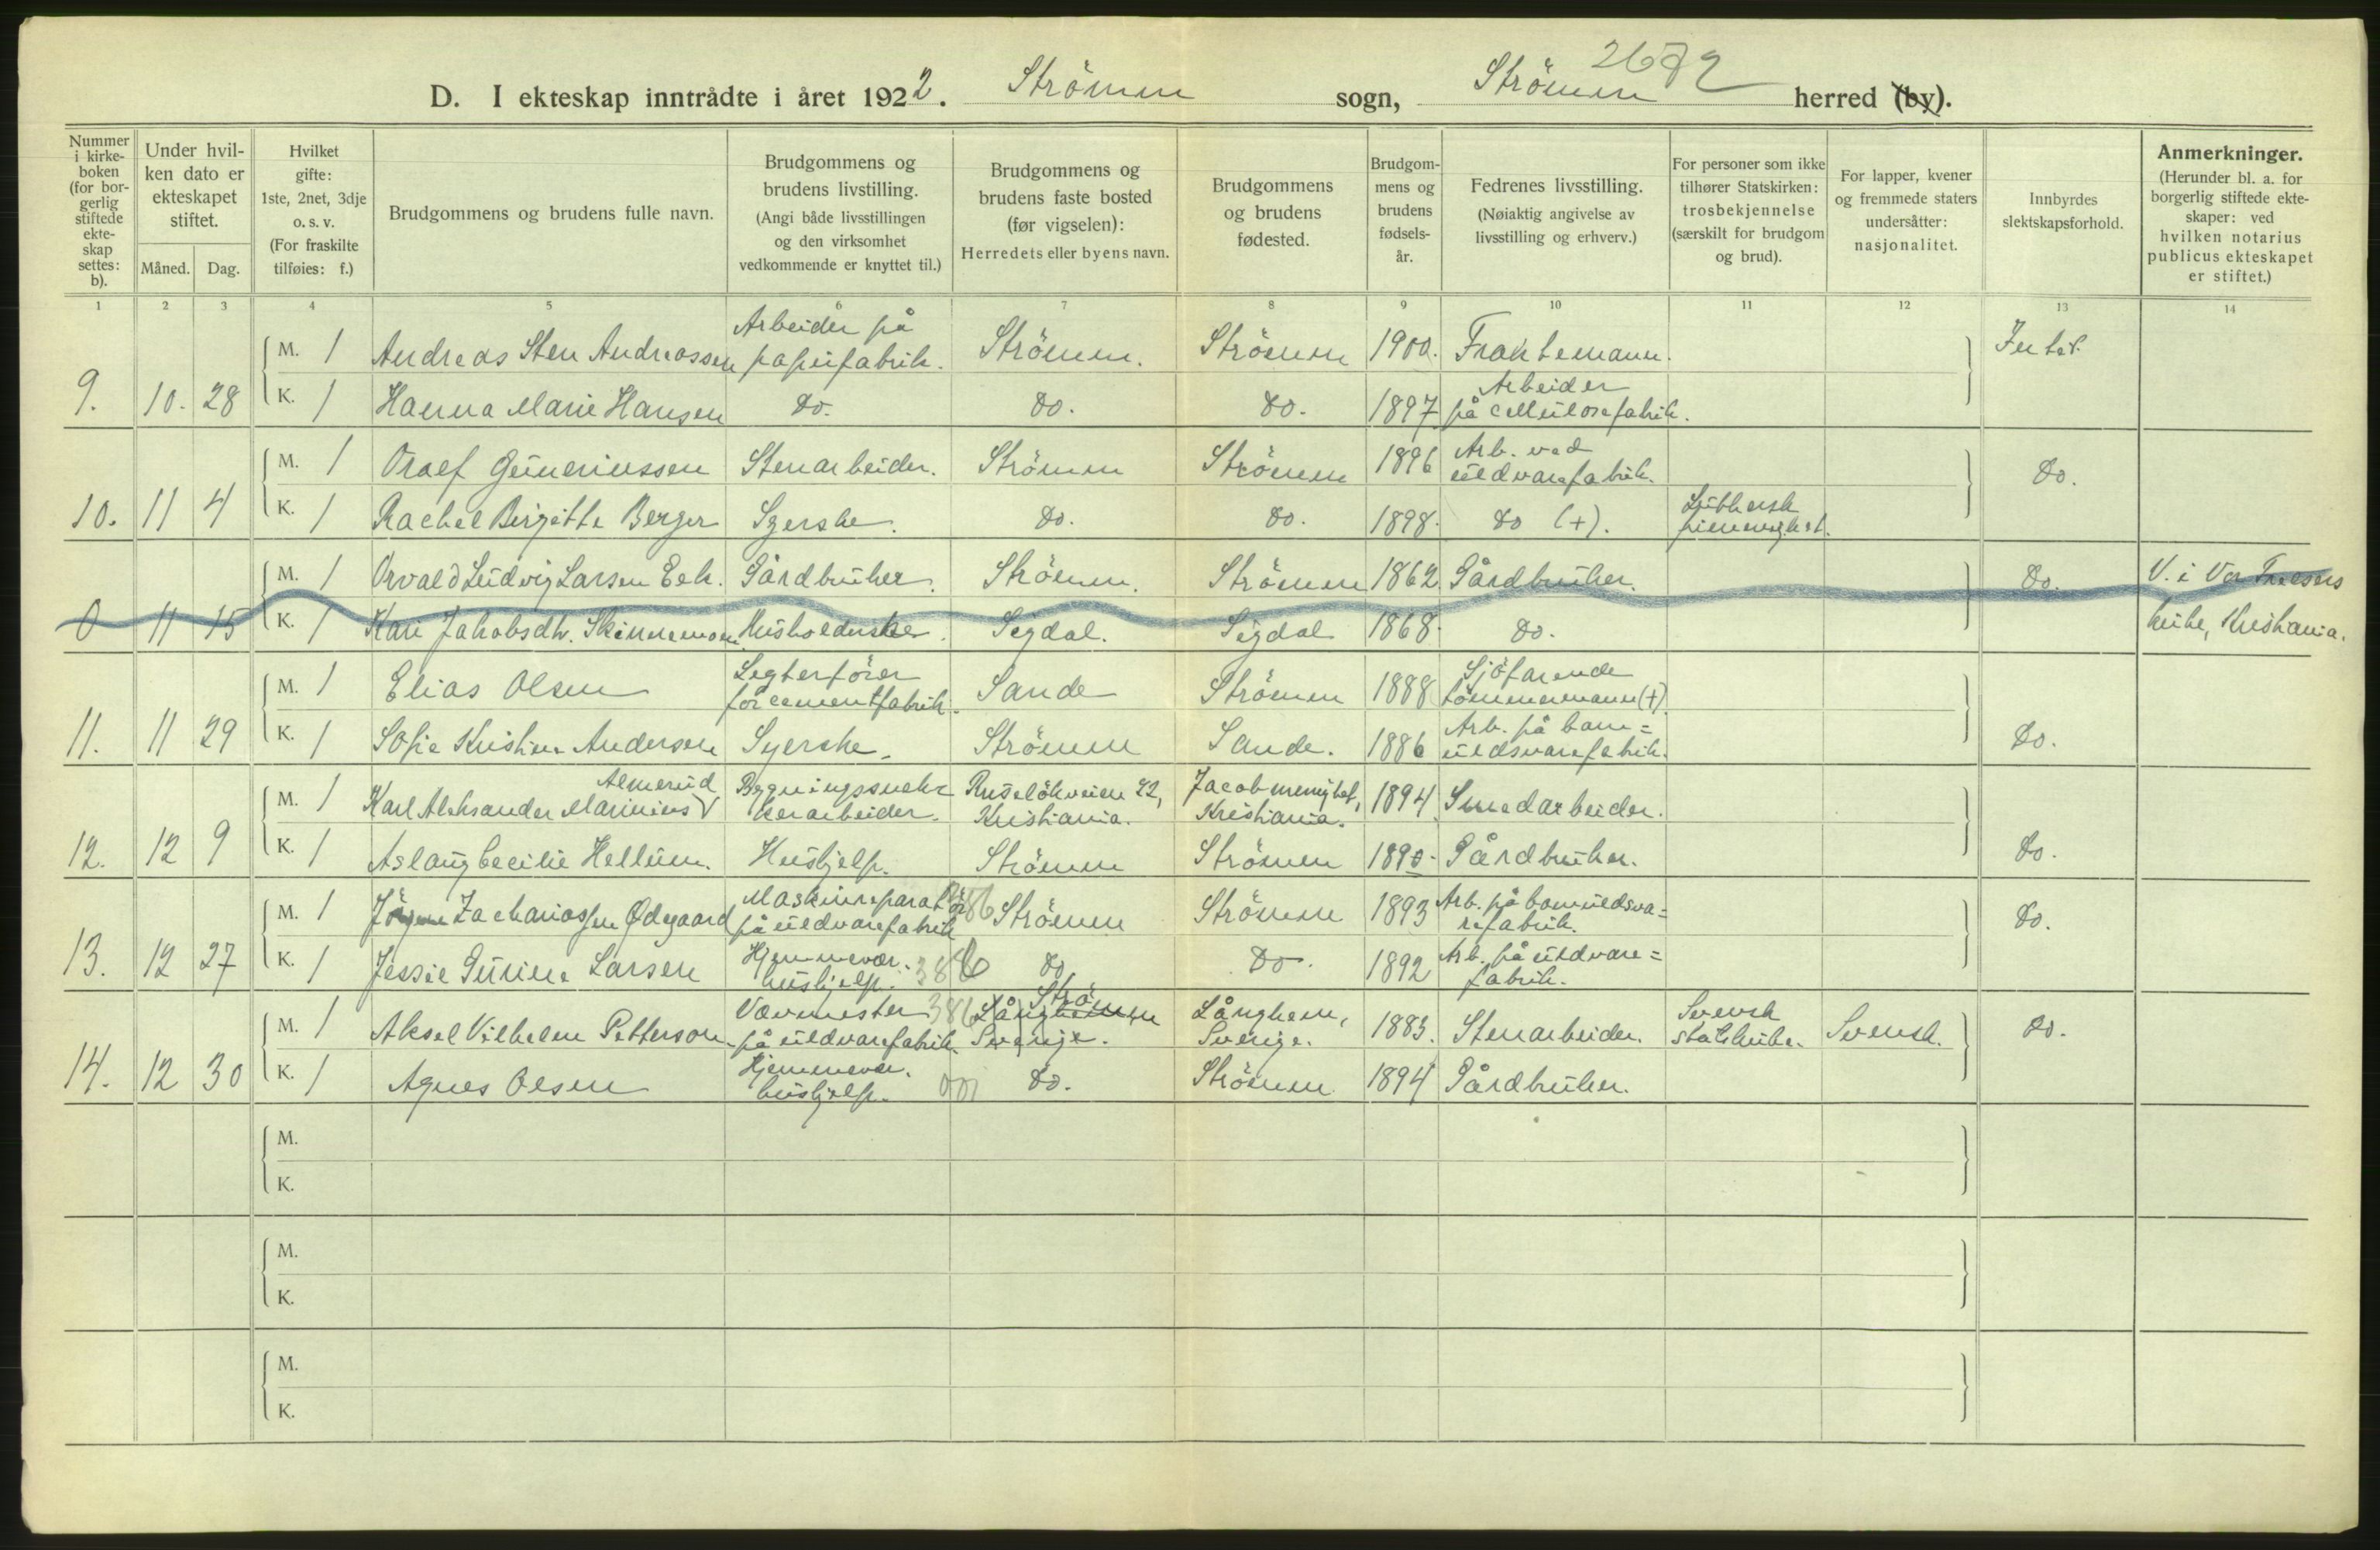 2672
D. I ekteskap inntrådte i året 1922. Strömm sogn, Strömm herred (by).
Nummer i kirkeboken (for borgerlig stiftede ekteskap settes: b).
Under hvilken dato er ekteskapet stiftet.
Måned. Dag.
Hvilket gifte: 1ste, 2net, 3dje o. s. v. (For fraskilte tilføies: f.)
Brudgommens og brudens fulle navn.
Brudgommens og brudens livstilling. (Angi både livsstillingen og den virksomhet vedkommende er knyttet til.)
Brudgommens og brudens faste bosted (før vigselen): Herredets eller byens navn.
Brudgommens og brudens fødested.
Brudgommens og brudens fødselsår.
Fedrenes livsstilling. (Nøiaktig angivelse av livsstilling og erhverv.)
For personer som ikke tilhører Statskirken: trosbekjennelse (særskilt for brudgom og brud).
For lapper, kvener og fremmede staters undersåtter: nasjonalitet.
Innbyrdes slektskapsforhold.
Anmerkninger. (Herunder bl. a. for borgerlig stiftede ekteskaper: ved hvilken notarius publicus ekteskapet er stiftet.)
1 2 3 4 5 6 7 8 9 10 11 12 13 14
9. 10. 28
M. 1 Andreas Sten Andreassen Arbeider på papirfabrik. Strömm. Strömm 1900. Fraktemann. Intet.
K. 1 Hanna Marie Hansen do. do. do. 1897 Arbeider på cellulosefabrik.
10. 11 4
M. 1 Olaf Guneriussen Stenarbeider. Strömm Strömm 1896 Arb. ved uldvarefabrik. do.
K. 1 Rachel Birgitte Berger Syerske. do. do. 1898. do (+). Luthersk frimenighet.
0 11 15
M. 1 Orvald Ludvig Larsen Eek. Gårdbruker. Strömm. Strömm 1862 Gårdbruker. do. V. i Vor Frelsers
K. 1 Kari Jakobsdtr. Husholderske. Sigdal. Sigdal 1868. do. kirke, Kristiania.
11. 11 29
M. 1 Elias Olsen Legterförer for cementfabrik. Sande Strömm 1888 Sjöfarende tömmermann (+)
K. 1 Sofie Kristine Andersen Syerske. Strömm Sande. 1886 Arb. på bomuldsvarefabrik. do.
12. 12 9
M. 1 Karl Aleksander Marinius Almerud Bygningssnekkerarbeider. Ruselökveien 42, Kristiania. Jacob menighet, Kristiania. 1894 Smedarbeider.
K. 1 Aslaug Cecilie Hellum. Hushjelp. Strömm Strömm 1890. Gårdbruker. do.
13. 12 27
M. 1 Jörgen Zachariassen Ødegaard Maskinreparatör på uldvarefabrik 386 Strömm Strömm 1893 Arb. på bomuldsvarefabrik. do.
K. 1 Jessie Gurine Larsen Hjemmevær. hushjelp. 386 do do. 1892 Arb. på uldvarefabrik.
14. 12 30
M. 1 Aksel Vilhelm Petterson Vævmester på uldvarefabrik. 386 Långhem Sverige. Strömm Långhem, Sverige. 1883. Stenarbeider. Svensk statskirke. Svensk. do.
K. 1 Agnes Olsen Hjemmevær. hushjelp. do. Strömm 1894 Gårdbruker.
M.
K.
M.
K.
M.
K.